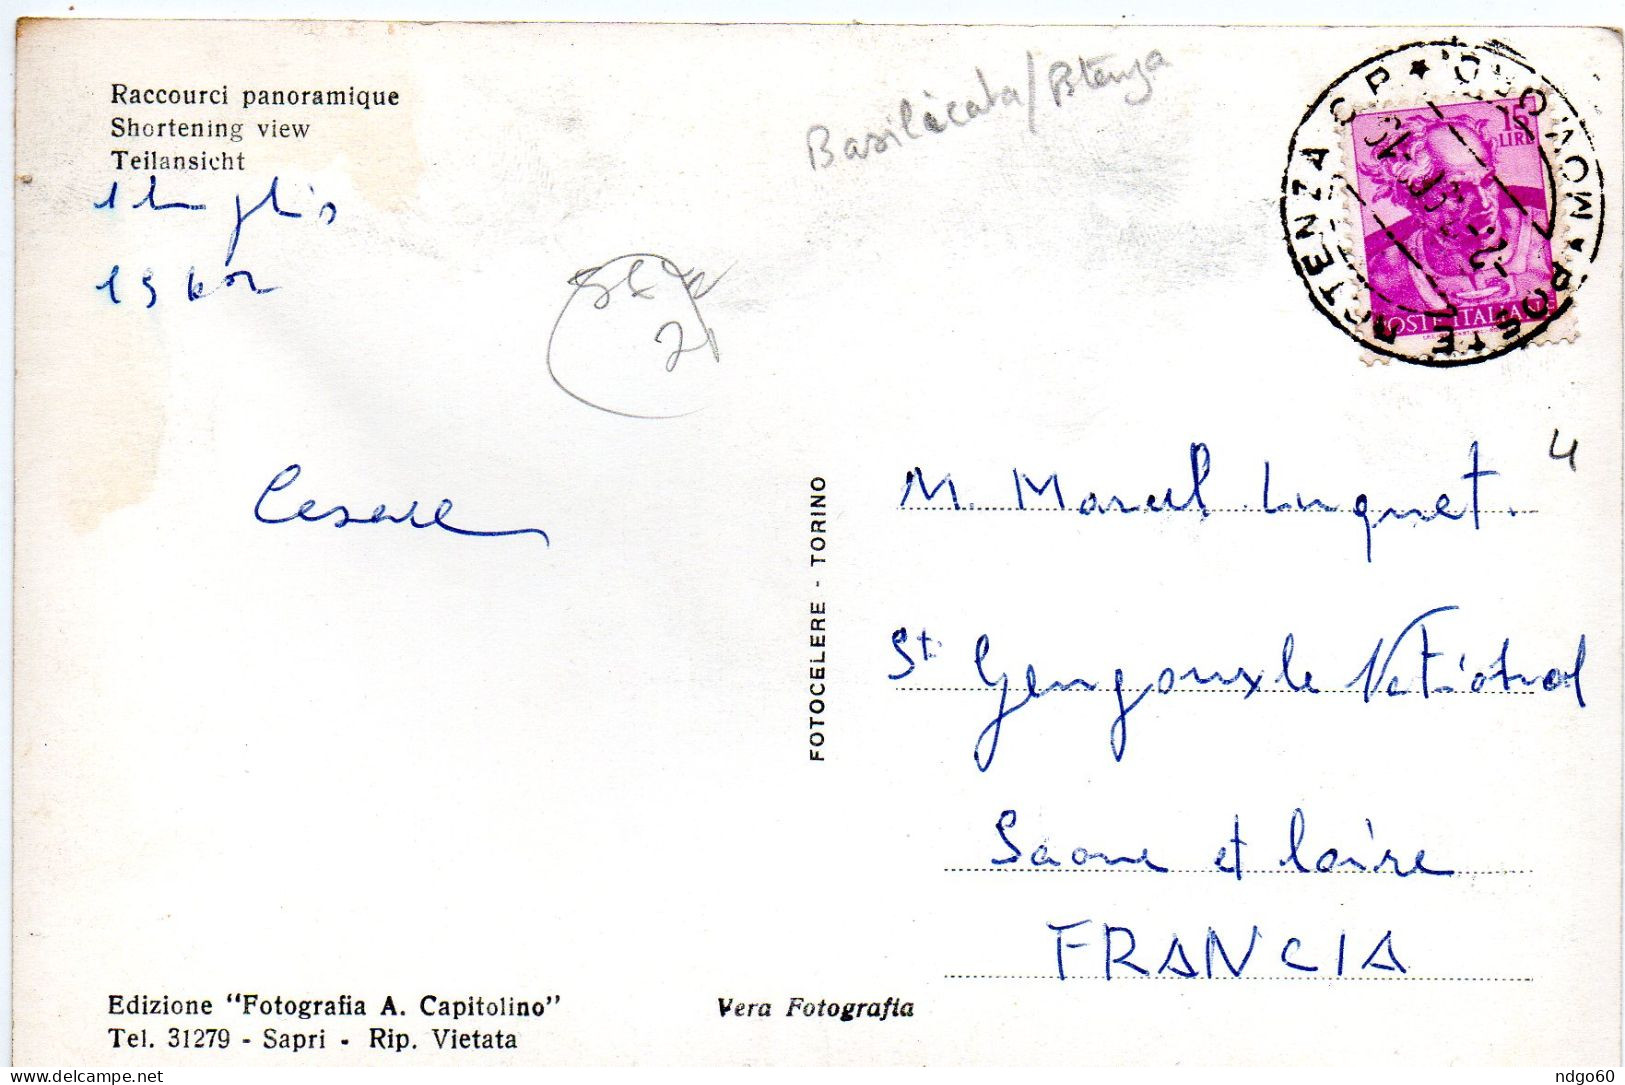 Raccourci panoramique
Shortening view
Teilansicht
Basilicata/Potenza
15
LIRE
POSTE ITALIANE
POSTE POTENZA
21
Cesare
4
M. Marcel Luquet.
St Gengoux le National
Saone et Loire
FRANCIA
FOTOCELERE - TORINO
Edizione "Fotografia A. Capitolino"
Tel. 31279 - Sapri - Rip. Vietata
Vera Fotografia
delcampe.net
ndgo60